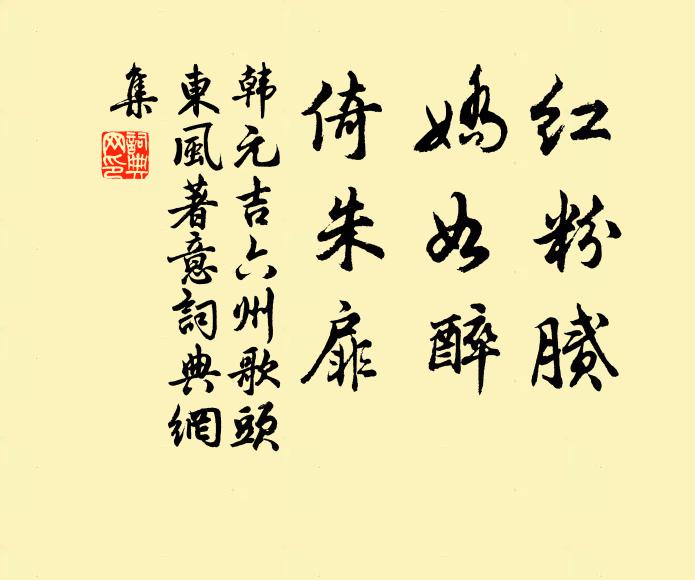 红粉腻
嬌如醉
倚朱扉
韩元吉六州歌頭
東風著意詞典網
集
詞典網印